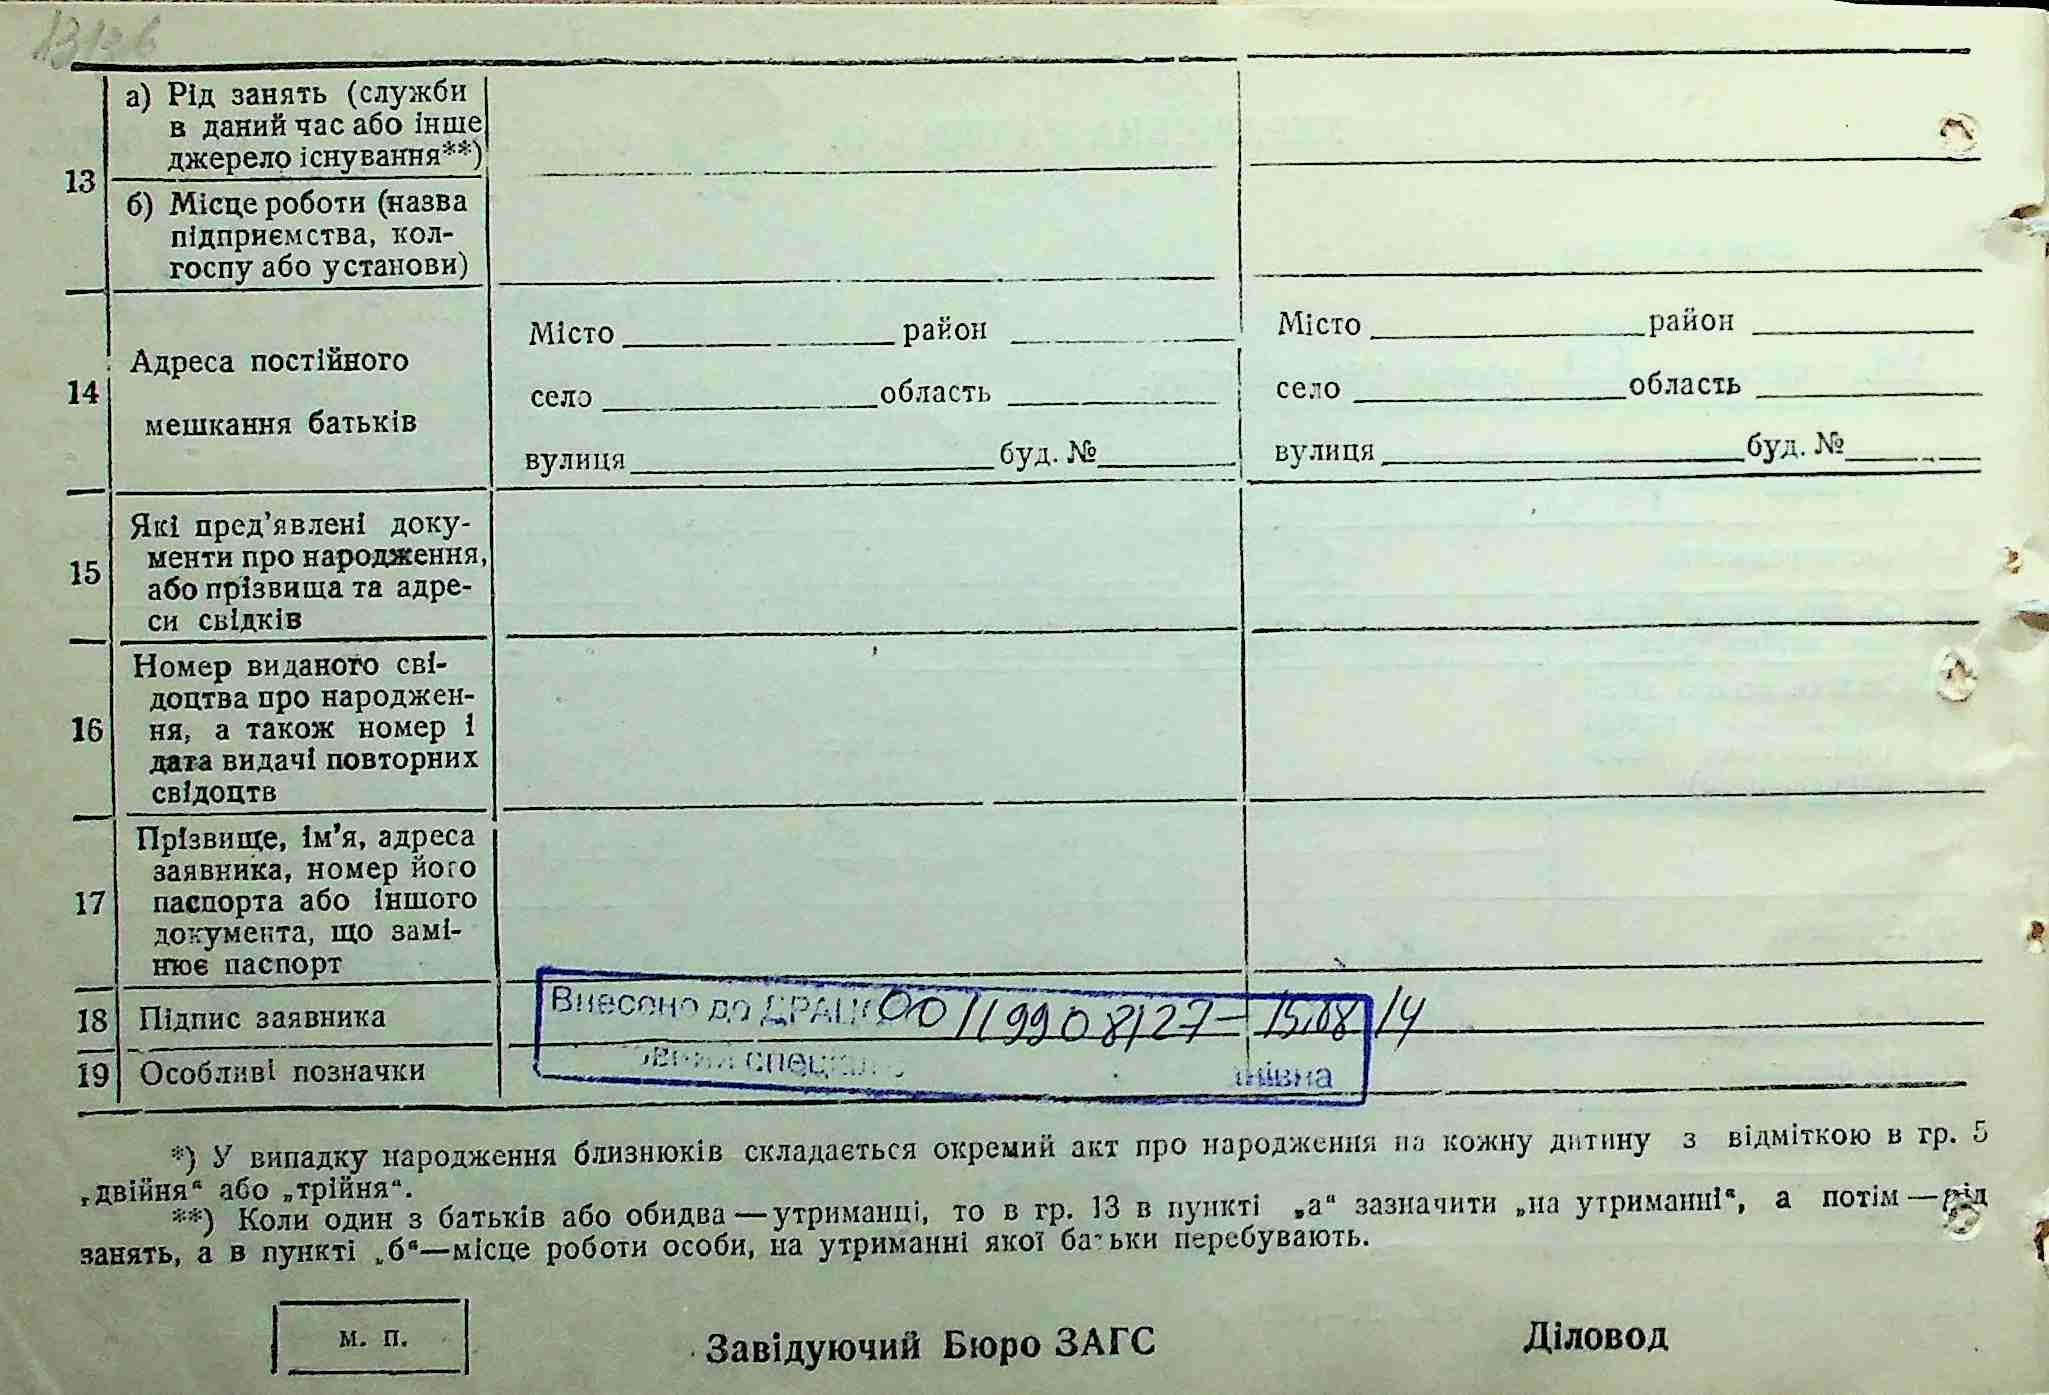 13
а) Рід занять (служби
в даний час або інше
джерело існування**)
б) Місце роботи (назва
підприємства, кол-
госпу або установи)
14
Адреса постійного
мешкання батьків
Місто район
село область
вулиця буд. №
Місто район
село область
вулиця буд. №
15
Які пред'явлені доку-
менти про народження,
або прізвища та адре-
си свідків
16
Номер виданого сві-
доцтва про народжен-
ня, а також номер і
дата видачі повторних
свідоцтв
17
Прізвище, ім'я, адреса
заявника, номер його
паспорта або іншого
документа, що замі-
нює паспорт
18 Підпис заявника
Внесено до ДРАЦС 00119908127 - 15.08.14
19 Особливі позначки
*) У випадку народження близнюків складається окремий акт про народження на кожну дитину з відміткою в гр. 5
„двійня“ або „трійня“.
**) Коли один з батьків або обидва — утриманці, то в гр. 13 в пункті „а“ зазначити „на утриманні“, а потім — рід
занять, а в пункті „б“—місце роботи особи, на утриманні якої батьки перебувають.
м. п.
Завідуючий Бюро ЗАГС
Діловод